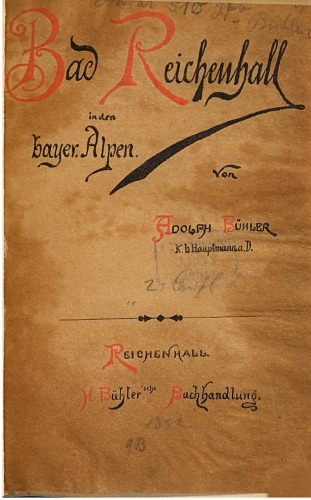 Bad Reichenhall
in den
bayer. Alpen.
von
ADOLPH BÜHLER
K. b. Hauptmann a. D.
REICHENHALL.
H. Bühler'sche Buchhandlung.